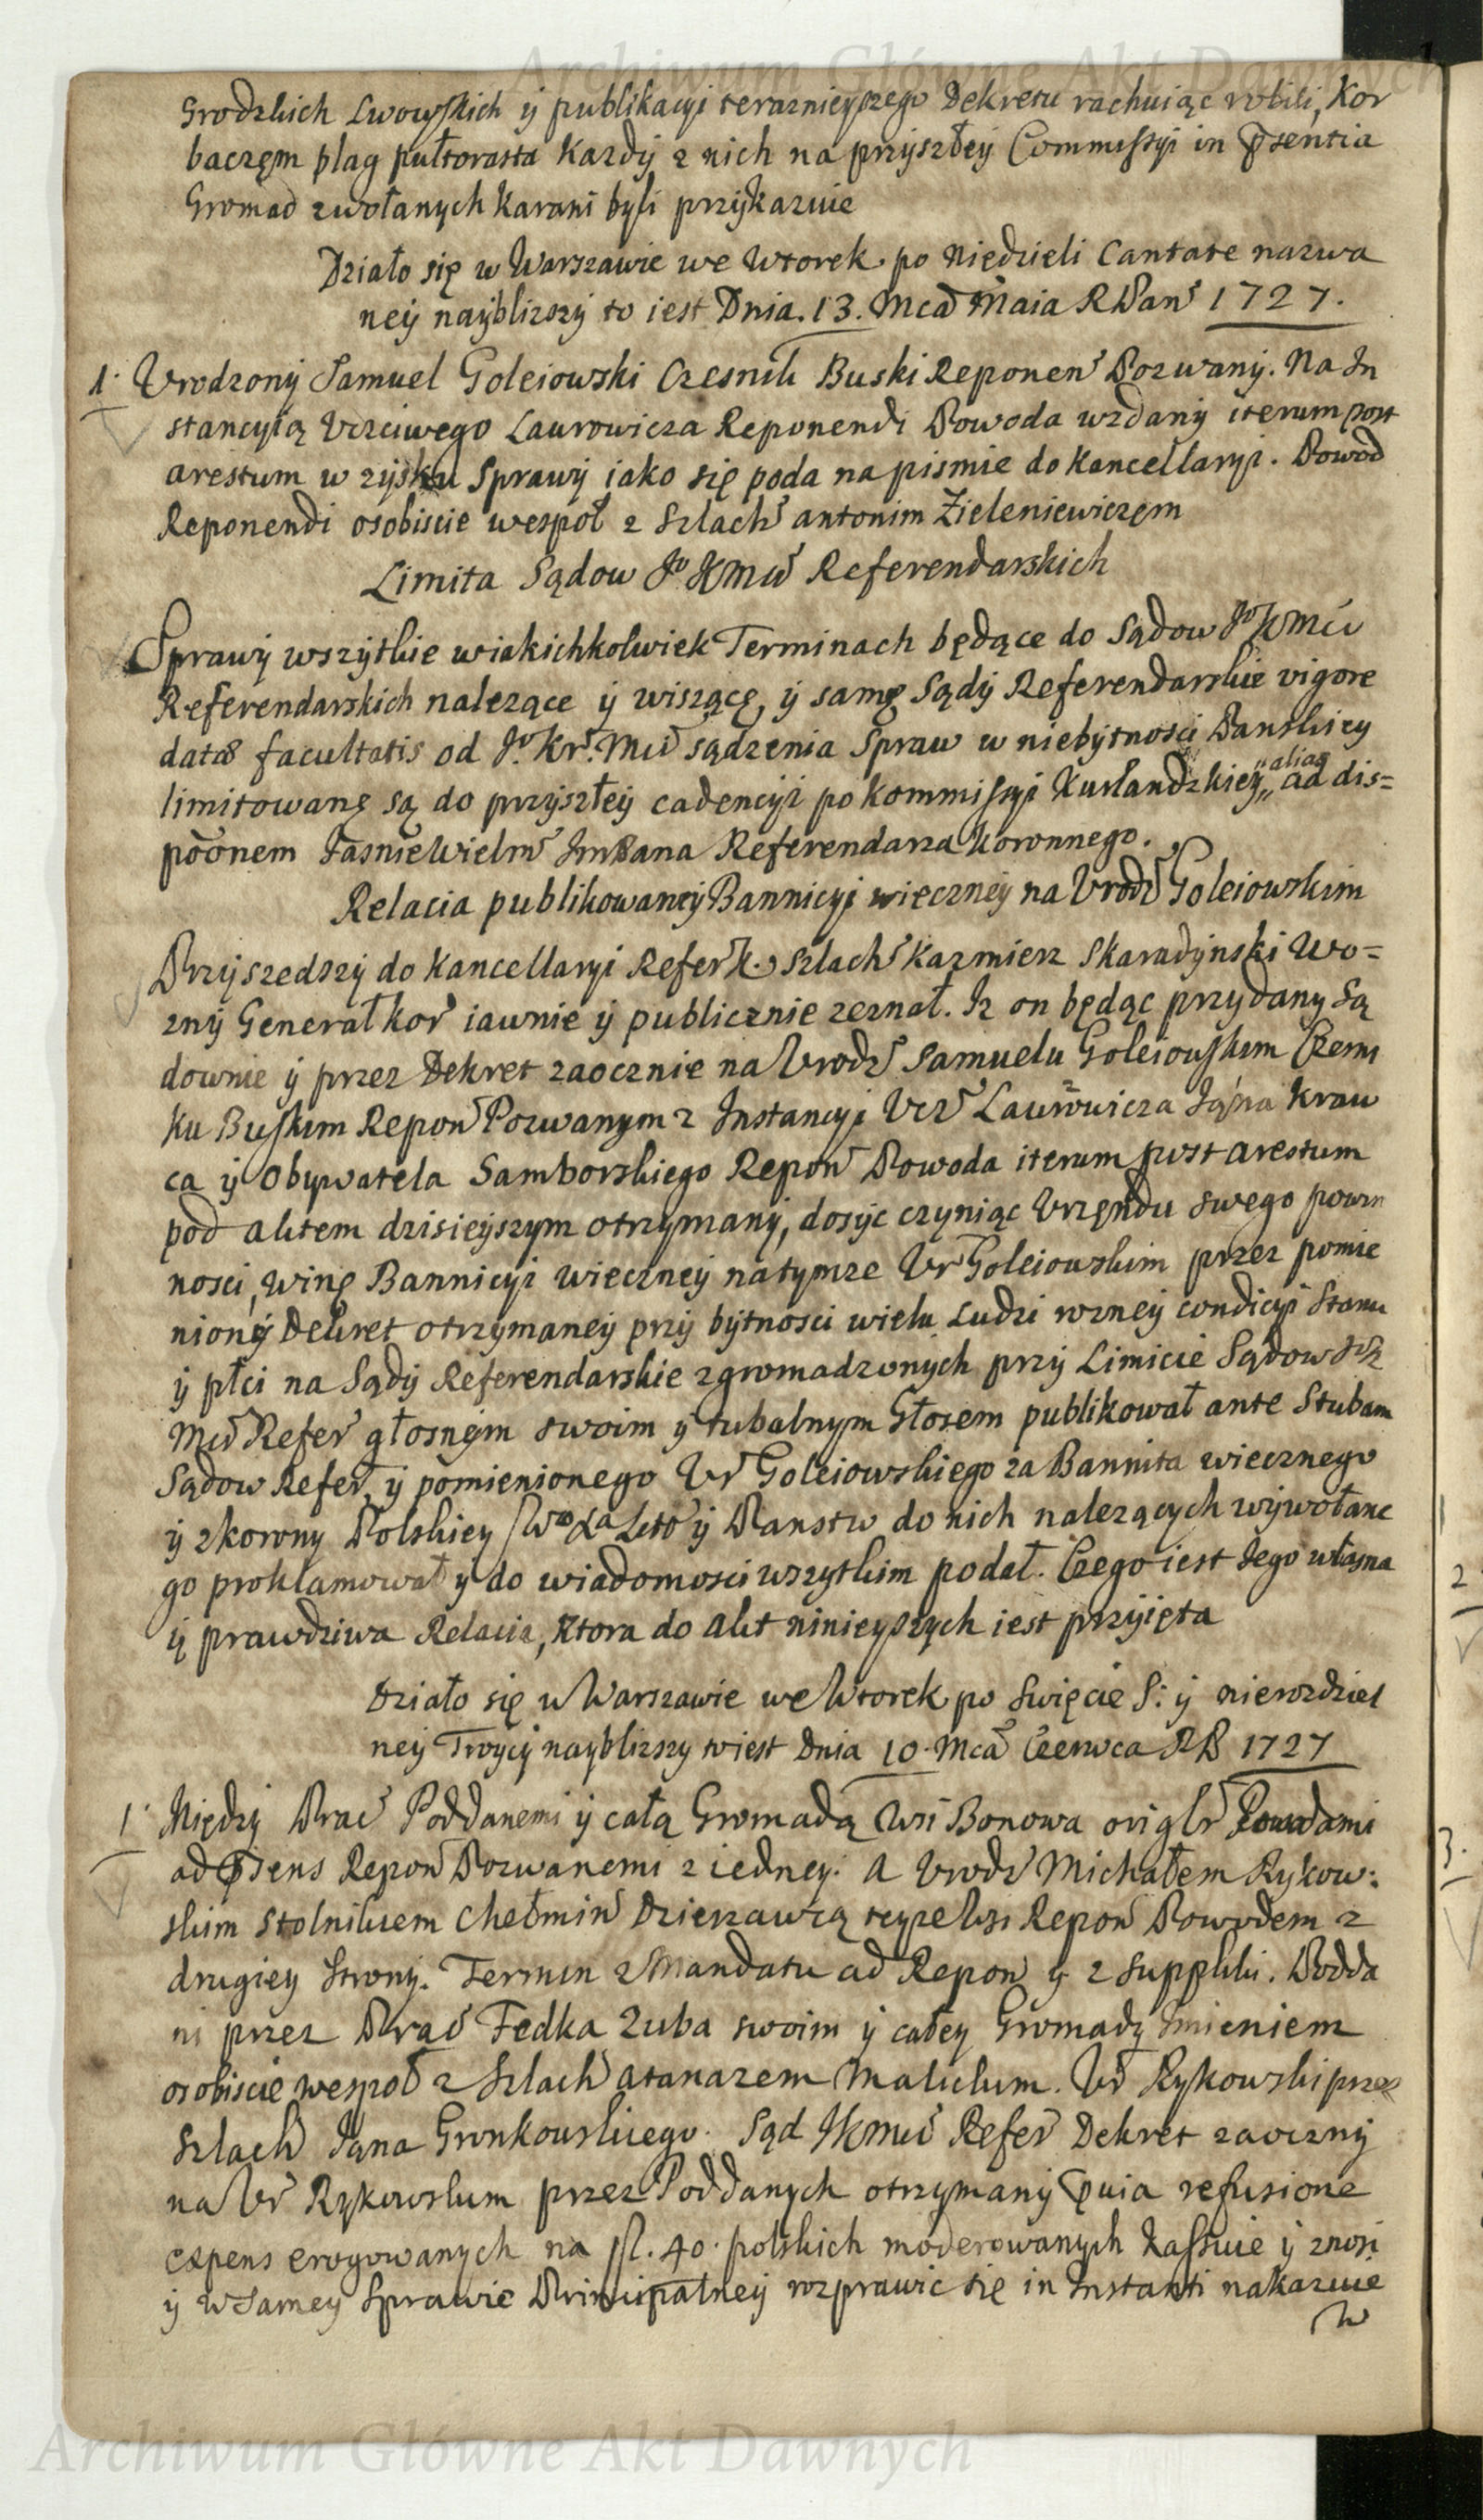 Archiwum Główne Akt Dawnych
Grodzkich Lwowskich ÿ publikacyi terazniejszego Dekretu rachuiąc robili, Kor
baczęm plag pułtorasta Kazdÿ z nich na przÿszłeÿ Commissyi in Psentia
Gromad zwołanych Karani byli przÿkazuie
Działo się w Warszawie we Wtorek po Niedzieli Cantate nazwa
neÿ naÿblizszÿ to iest Dnia 13. Mca Maia R Pan 1727.
1. Vrodzonÿ Samuel Goleiowski Czesnik Buski Reponen Pozwanÿ. Na In
stancyią Vczciwego Laurowicza Reponendi Powoda wzdanÿ iterum post
arestum w zÿsku Sprawÿ iako się poda na pismie do Kancellaryi. Powod
Reponendi osobiscie wespoł z Szlach antonim Zieleniewiczęm
Limita Sądow Jo Kmci Referendarskich
Sprawÿ wszÿtkie wiakichkolwiek Terminach będące do Sądow Jo Kmci
Referendarskich nalezące ÿ wiszącę, ÿ samę Sądÿ Referendarskie vigore
datæ facultatis od Jo Kr Mci sądzenia Spraw w niebÿtnosci Panskiey
limitowanę są do przÿszłeÿ cadencÿi po Kommissyi Kurlandzkieÿ,, alias ad dis=
poonem Jasnie Wielm Jm Pana Referendarza Koronnego.
Relacia publikowaneÿ Bannicyi wieczneÿ na Vrodz Goleiowskim
Przÿszedszÿ do Kancellaryi Refer K. Szlach Kazmierz Skaradÿnski Wo=
znÿ Generał Kor iawnie ÿ publicznie zeznał. Iz on będąc przydany Są
downie ÿ przez Dekret zaocznie na Vrodz Samuelu Goleiowskim Czesni
ku Buskim Repon Pozwanym z Instancyi Vcz Laurowicza Jana Kraw
ca ÿ Obywatela Samborskiego Repon Powoda iterum post arestum
pod aktem dzisieÿszym otrzymanÿ, dosÿc czyniąc Vrzęndu swego powin
nosci, winę Bannicyi wieczneÿ natymze Vr Goleiowskim przez pomie
nionÿ Dekret otrzymaneÿ przÿ bÿtnosci wielu Ludzi rozneÿ condicyi Stanu
ÿ płci na Sądÿ Referendarskie zgromadzonÿch przÿ Limicie Sądow JoK
Mci Refer głosnęm swoim ÿ tubalnym Głosem publikował ante Stubam
Sądow Refer, ÿ pomienionego Vr Goleiowskiego za Bannita wiecznego
ÿ zkorony Polskiey Wo Xa Litto ÿ Panstw do nich nalezącÿch wÿwołane
go proklamował ÿ do wiadomosci wszytkim podał. Czego iest Jego własna
ÿ prawdziwa Relacia, Ktora do akt ninieyszych iest przÿięta
Działo się w Warszawie we Wtorek po Swięcie S: ÿ nierozdziel
neÿ Troÿcÿ naÿblizszy to iest Dnia 10. Mca Czerwca RP 1727
1. Międzÿ Prac Poddanemi ÿ całą Gromadą Wsi Bonowa origlr Powodami
ad Psens Repon Pozwanemi z iedney. A Vrodz Michałem Rykow:
skim Stolnikiem Chełmin Dzierzawcą teyze Wsi Repon Powodem z
drugiey Stronÿ. Termin z Mandatu ad Repon ÿ z Suppliki. Podda
ni przez Prac Fedka Zuba swoim ÿ całey Gromadÿ Imieniem
osobiscie wespoł z Szlach atanazem Malickim. Vr Rykowski przez
Szlach Jana Gronkowskiego. Sąd JKmci Refer Dekret zaocznÿ
na Vr Rykowskim przez Poddanych otrzymanÿ quia refusione
expens erogowanych na fl. 40. polskich moderowanych Kassuie ÿ znosi
ÿ wSamey Sprawie Principalneÿ rozprawic się in Instanti nakazuie
w
2
3.
Archiwum Główne Akt Dawnych